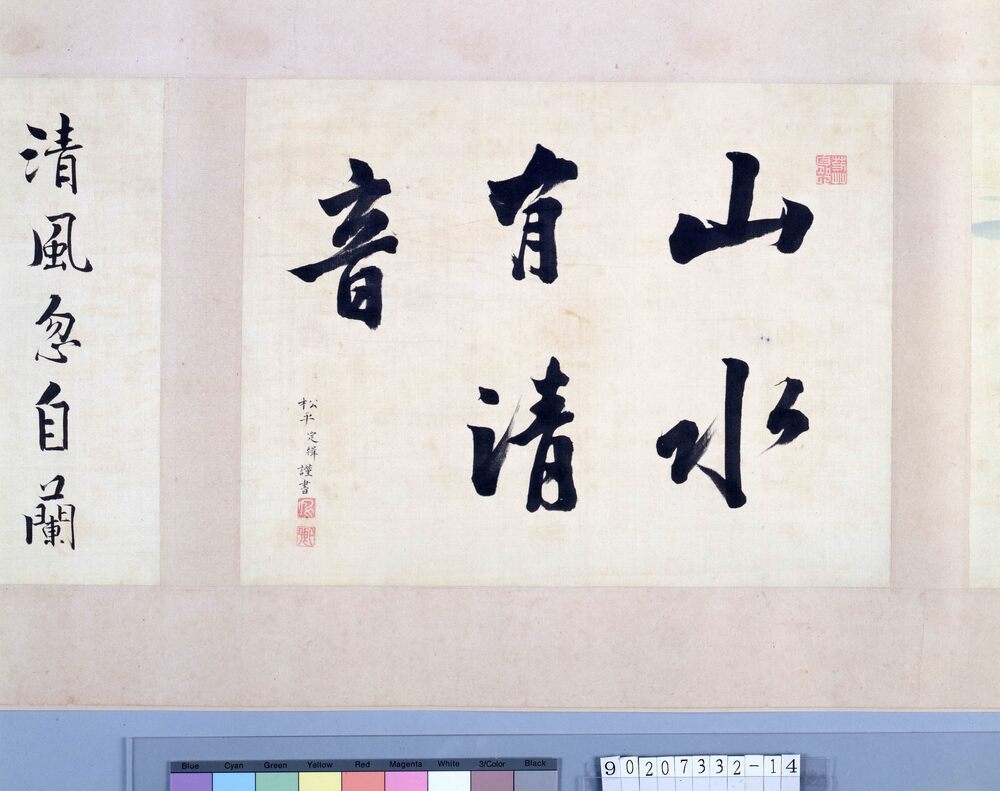 山水
有清
音
松平定輝謹書
清風忽自蘭
Blue Cyan Green Yellow Red Magenta White 3/Color Black
90207332-14